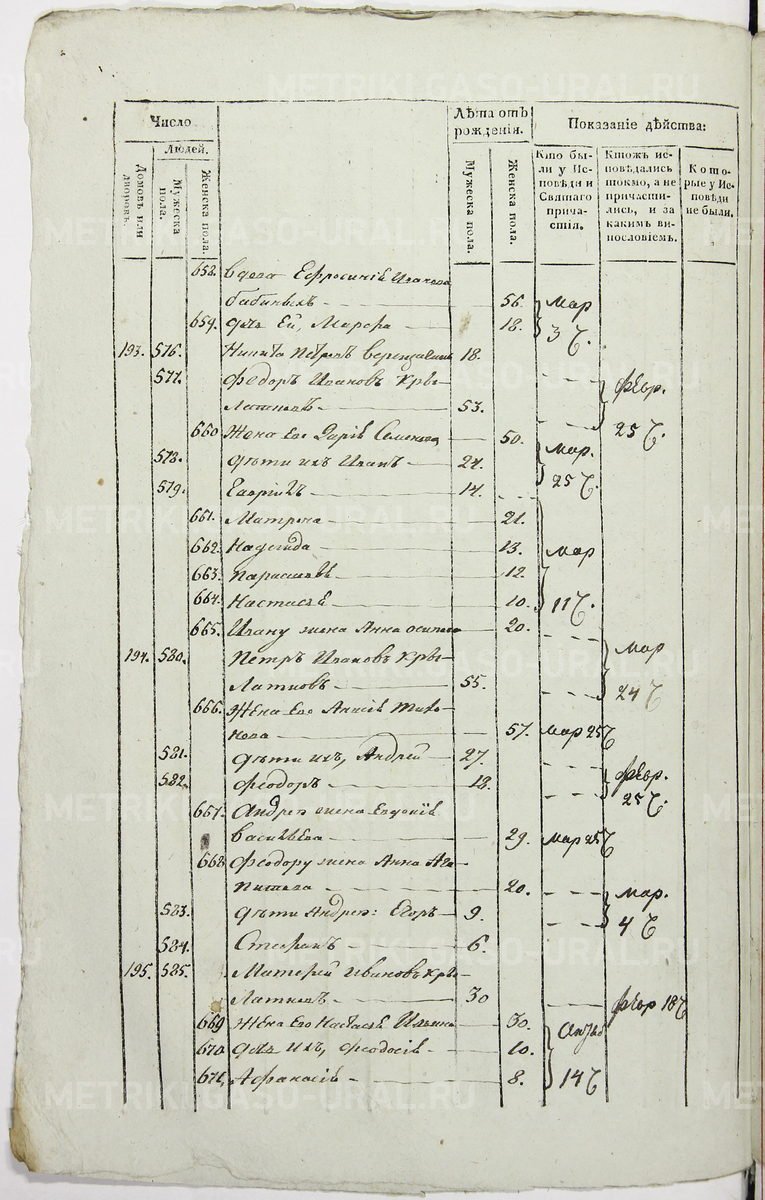 METRIKI.GASO-URAL.RU
Число
Людей.
Домовъ или дворовъ.
Мужеска пола.
Женска пола.
Лѣта отъ рожденія.
Мужеска пола.
Женска пола.
Показаніе дѣйства:
Кто бы-
ли у Ис-
повѣди и
Святаго
прича-
стія.
Ктожъ ис-
повѣдались
токмо, а не
причасти-
лись, и за
какимъ ви-
нословіемъ.
Кото-
рые у Ис-
повѣди
не были.
658. вдова Ефросинія Иванова
бабиныхъ — 56. мар
659. дчь Ей, Марфа — 18. 3 Ч.
193. 576. Никита Петровъ 18.
577. Федоръ Ивановъ Кры- февр.
латковъ — 53.
660 Жена Его Дарія Семенова 50. мар. 25 Ч.
578. дѣти ихъ Иванъ — 24.
579. Гаврійлъ — 14. 25 Ч.
661. Матрена — 21.
662. Надежда — 13. мар
663. Парасковья — 12.
664. Настасья — 10. 11 Ч.
665. Ивану жена Анна осипова 20.
194. 580. Петръ Ивановъ Кры- мар
латковъ — 55. 24 Ч
666. Жена Его Анисія Тихо-
нова — 57. мар 25 Ч
581. дѣти ихъ, Андрей — 27.
582. Феодоръ — 18. февр.
667. Андрея жена Евдокія 25 Ч.
Васильева — 29. мар 25 Ч
668 Феодору жена Анна Ага-
питова — 20. мар.
583. дѣти Андрея: Егоръ — 9. 4 Ч
584. Стефанъ — 6.
195. 585. Матфей Ивановъ Кры-
латковъ — 30 февр 18 Ч
669 Жена Его Настасья Ильина 30.
670 дчь ихъ, Феодосія — 10.
671, Афанасія — 8. 14 Ч